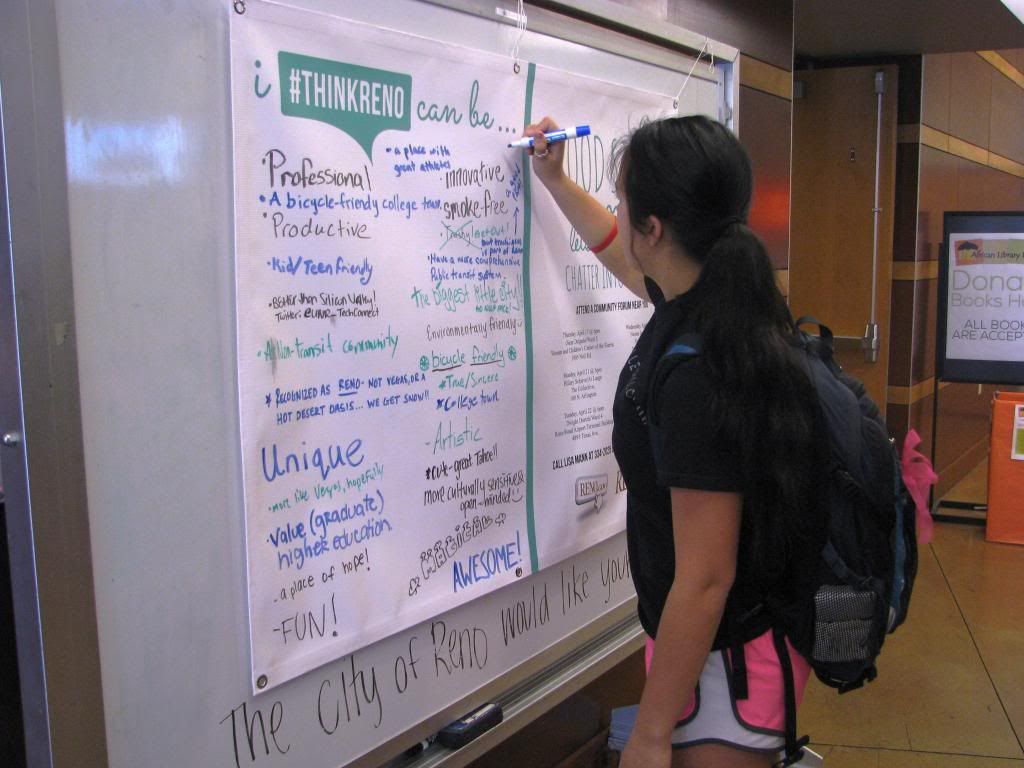 i #THINKRENO can be...
·Professional
·A bicycle-friendly college town
·Productive
·Kid/Teen friendly
·Better than Silicon Valley!
Twitter: @UNR_TechConnect
transit community
* RECOGNIZED AS RENO - NOT VEGAS, OR A
HOT DESERT OASIS... WE GET SNOW!!
Unique
·more like Vegas, hopefully
·value (graduate)
higher education
- a place of hope!
-FUN!
·a place with
great athletes
·innovative
smoke-free
but
is part of
·Have a more comprehensive
Public transit system.
·The biggest little city!!
Environmentally friendly
bicycle friendly
*True/Sincere
*College town
-Artistic
*cute-great Tahoe!!
more culturally sensitive &
open-minded
MAGICAL
AWESOME!
CHATTER INTO
ATTEND A COMMUNITY FORUM NEAR YOU
CALL LISA MANN AT 334-
The City of Reno would like your
African Library
Dona
Books He
ALL BOOK
ARE ACCEP